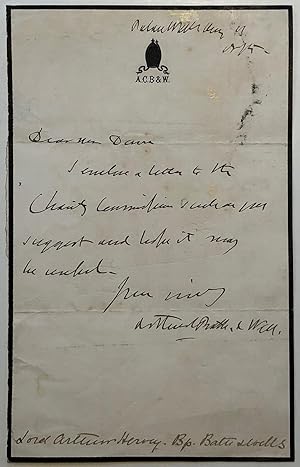 Palace Wells Aug
A.C.B.&W.
I enclose a letter to the
Charity Commissioners such as you
suggest and hope it may
be useful -
Arthur C Bath & Well.
Lord Arthur Hervey. Bp. Bath & Wells